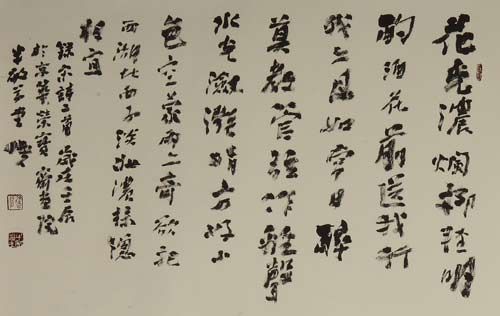 花光濃爛柳輕明
酌酒花前送我行
我亦且如常日醉
莫教管弦作離聲
水光瀲灩晴方好山
色空蒙雨亦奇欲把
西湖比西子淡妝濃抹總
相宜
錄宋詩二首歲在壬辰
於京華榮寶齋畫院